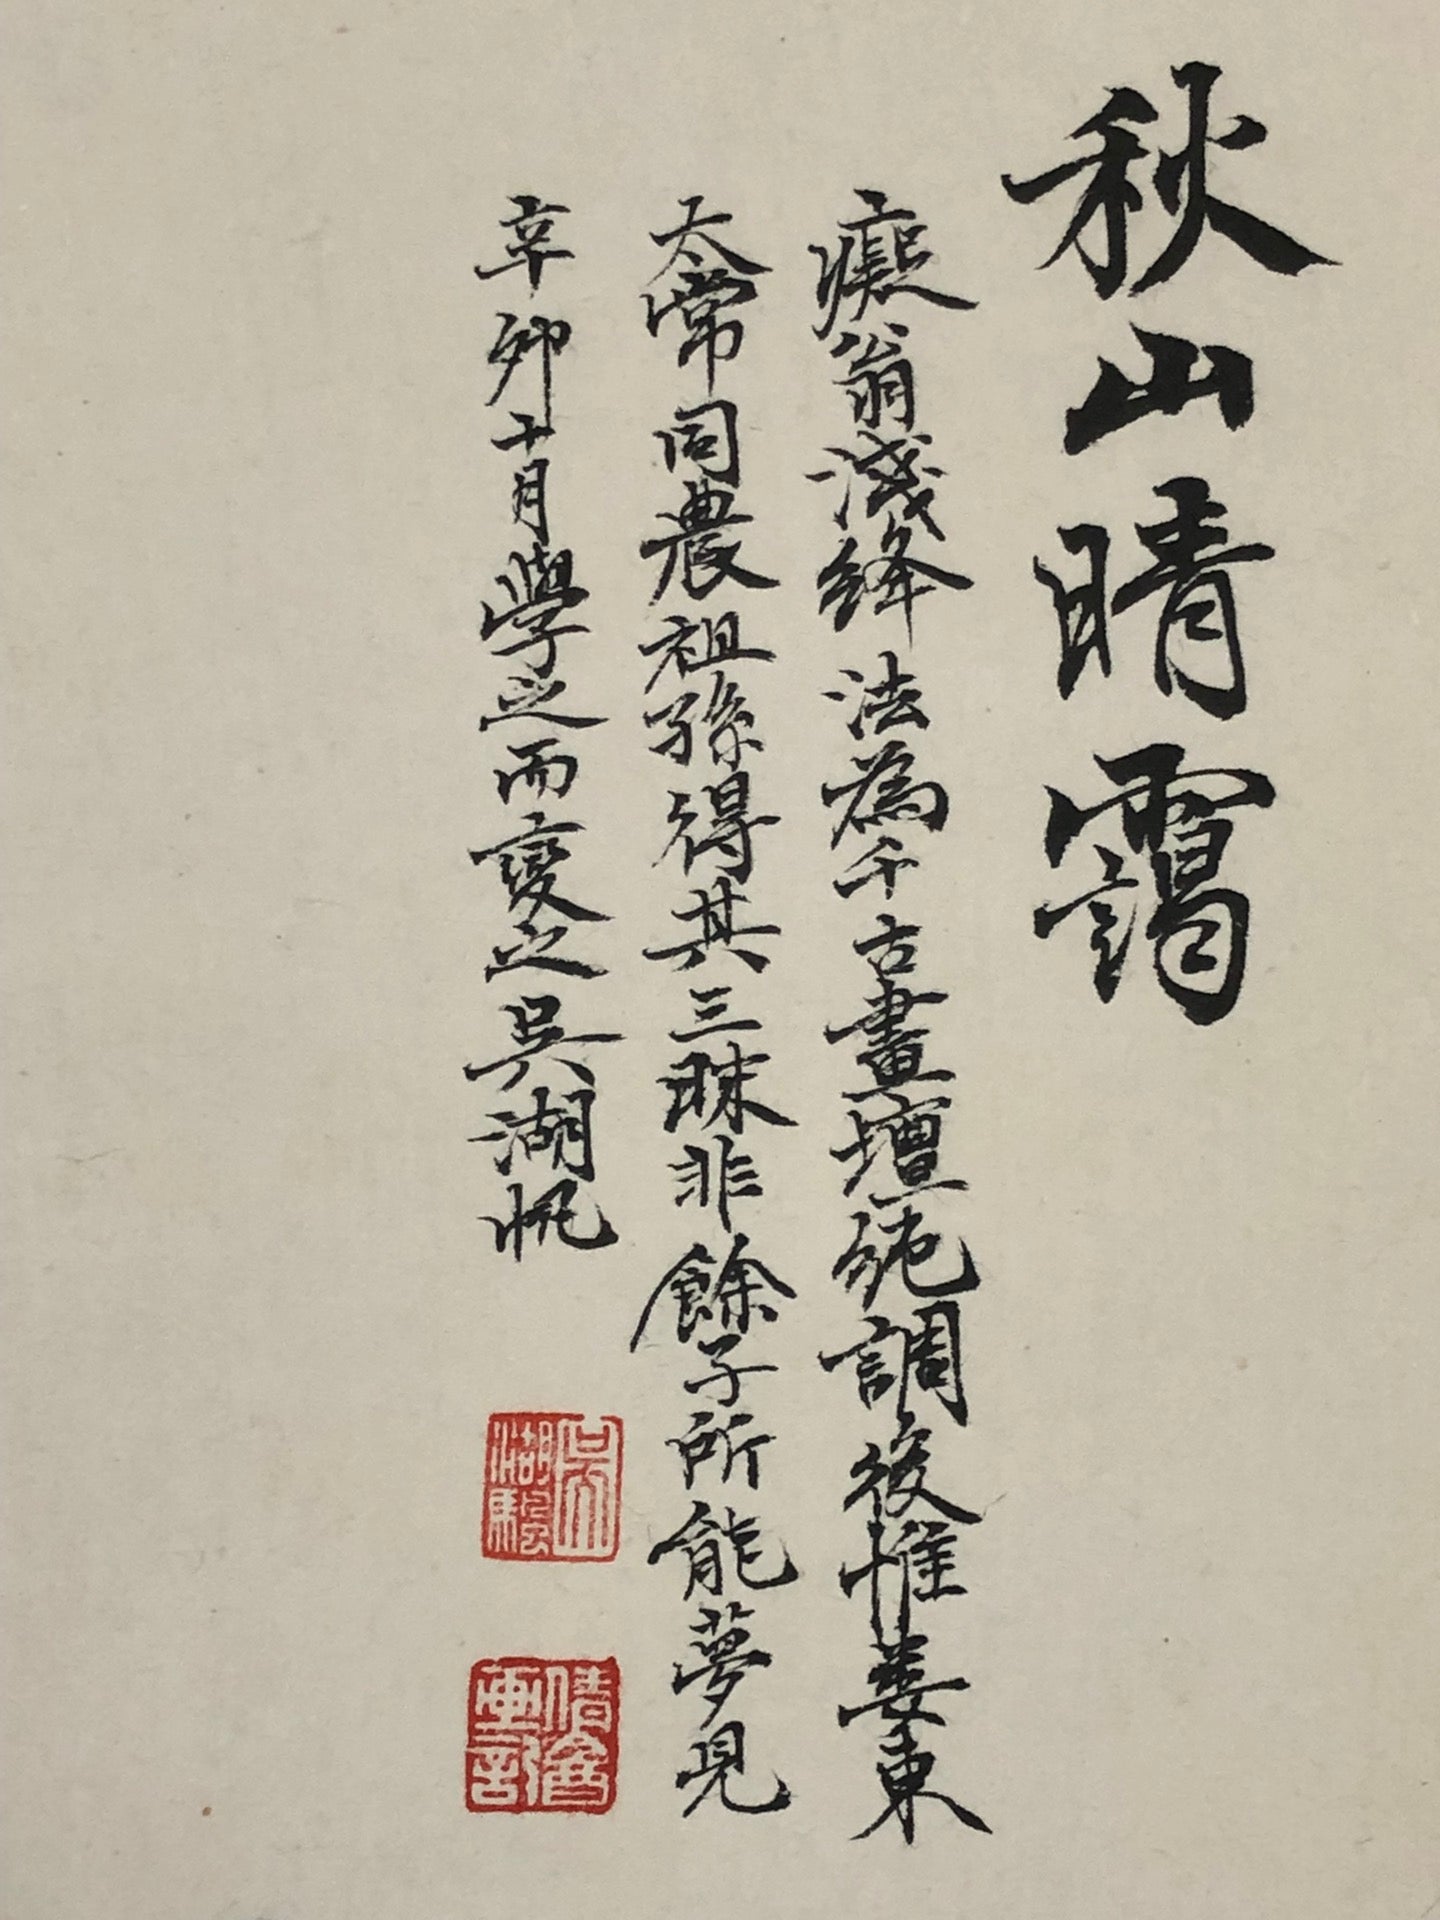 秋山晴靄
癡翁淺絳法為千古畫壇絕調後惟婁東
太常司農祖孫得其三昧非餘子所能夢見
辛卯十月學之而變之吳湖帆
吳湖颿
倩盦畫記